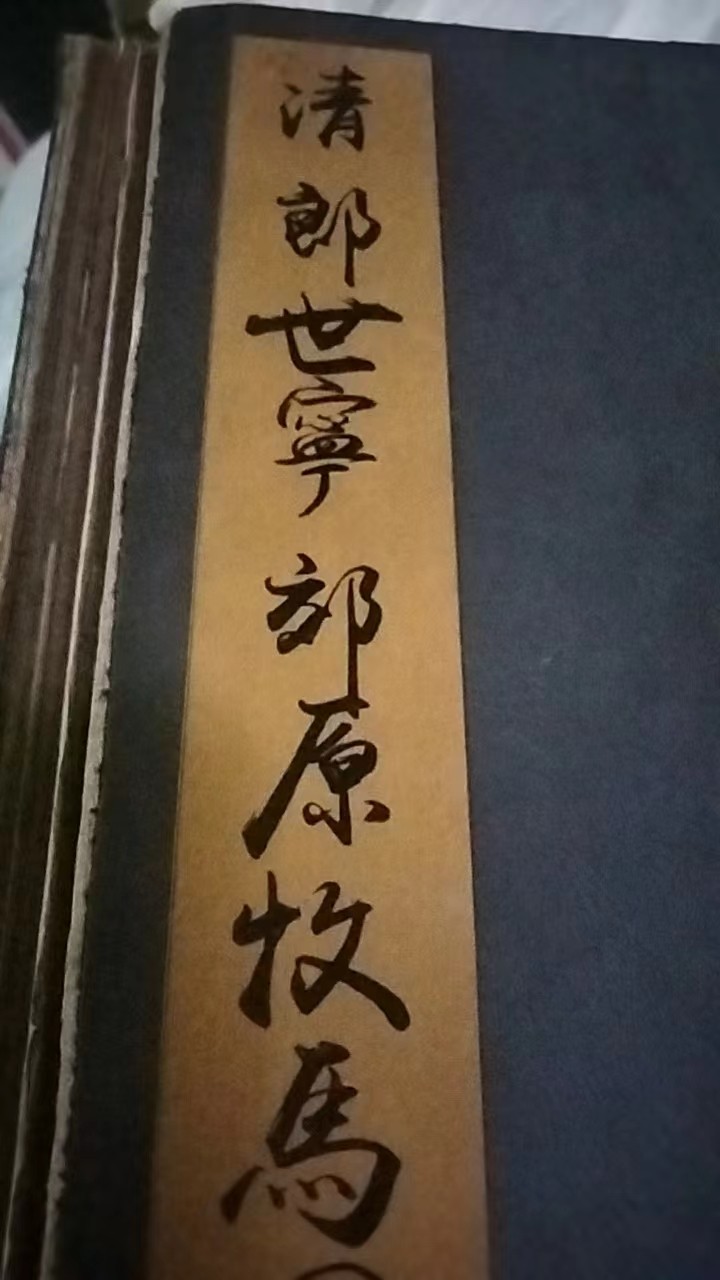 清郎世寧郊原牧馬